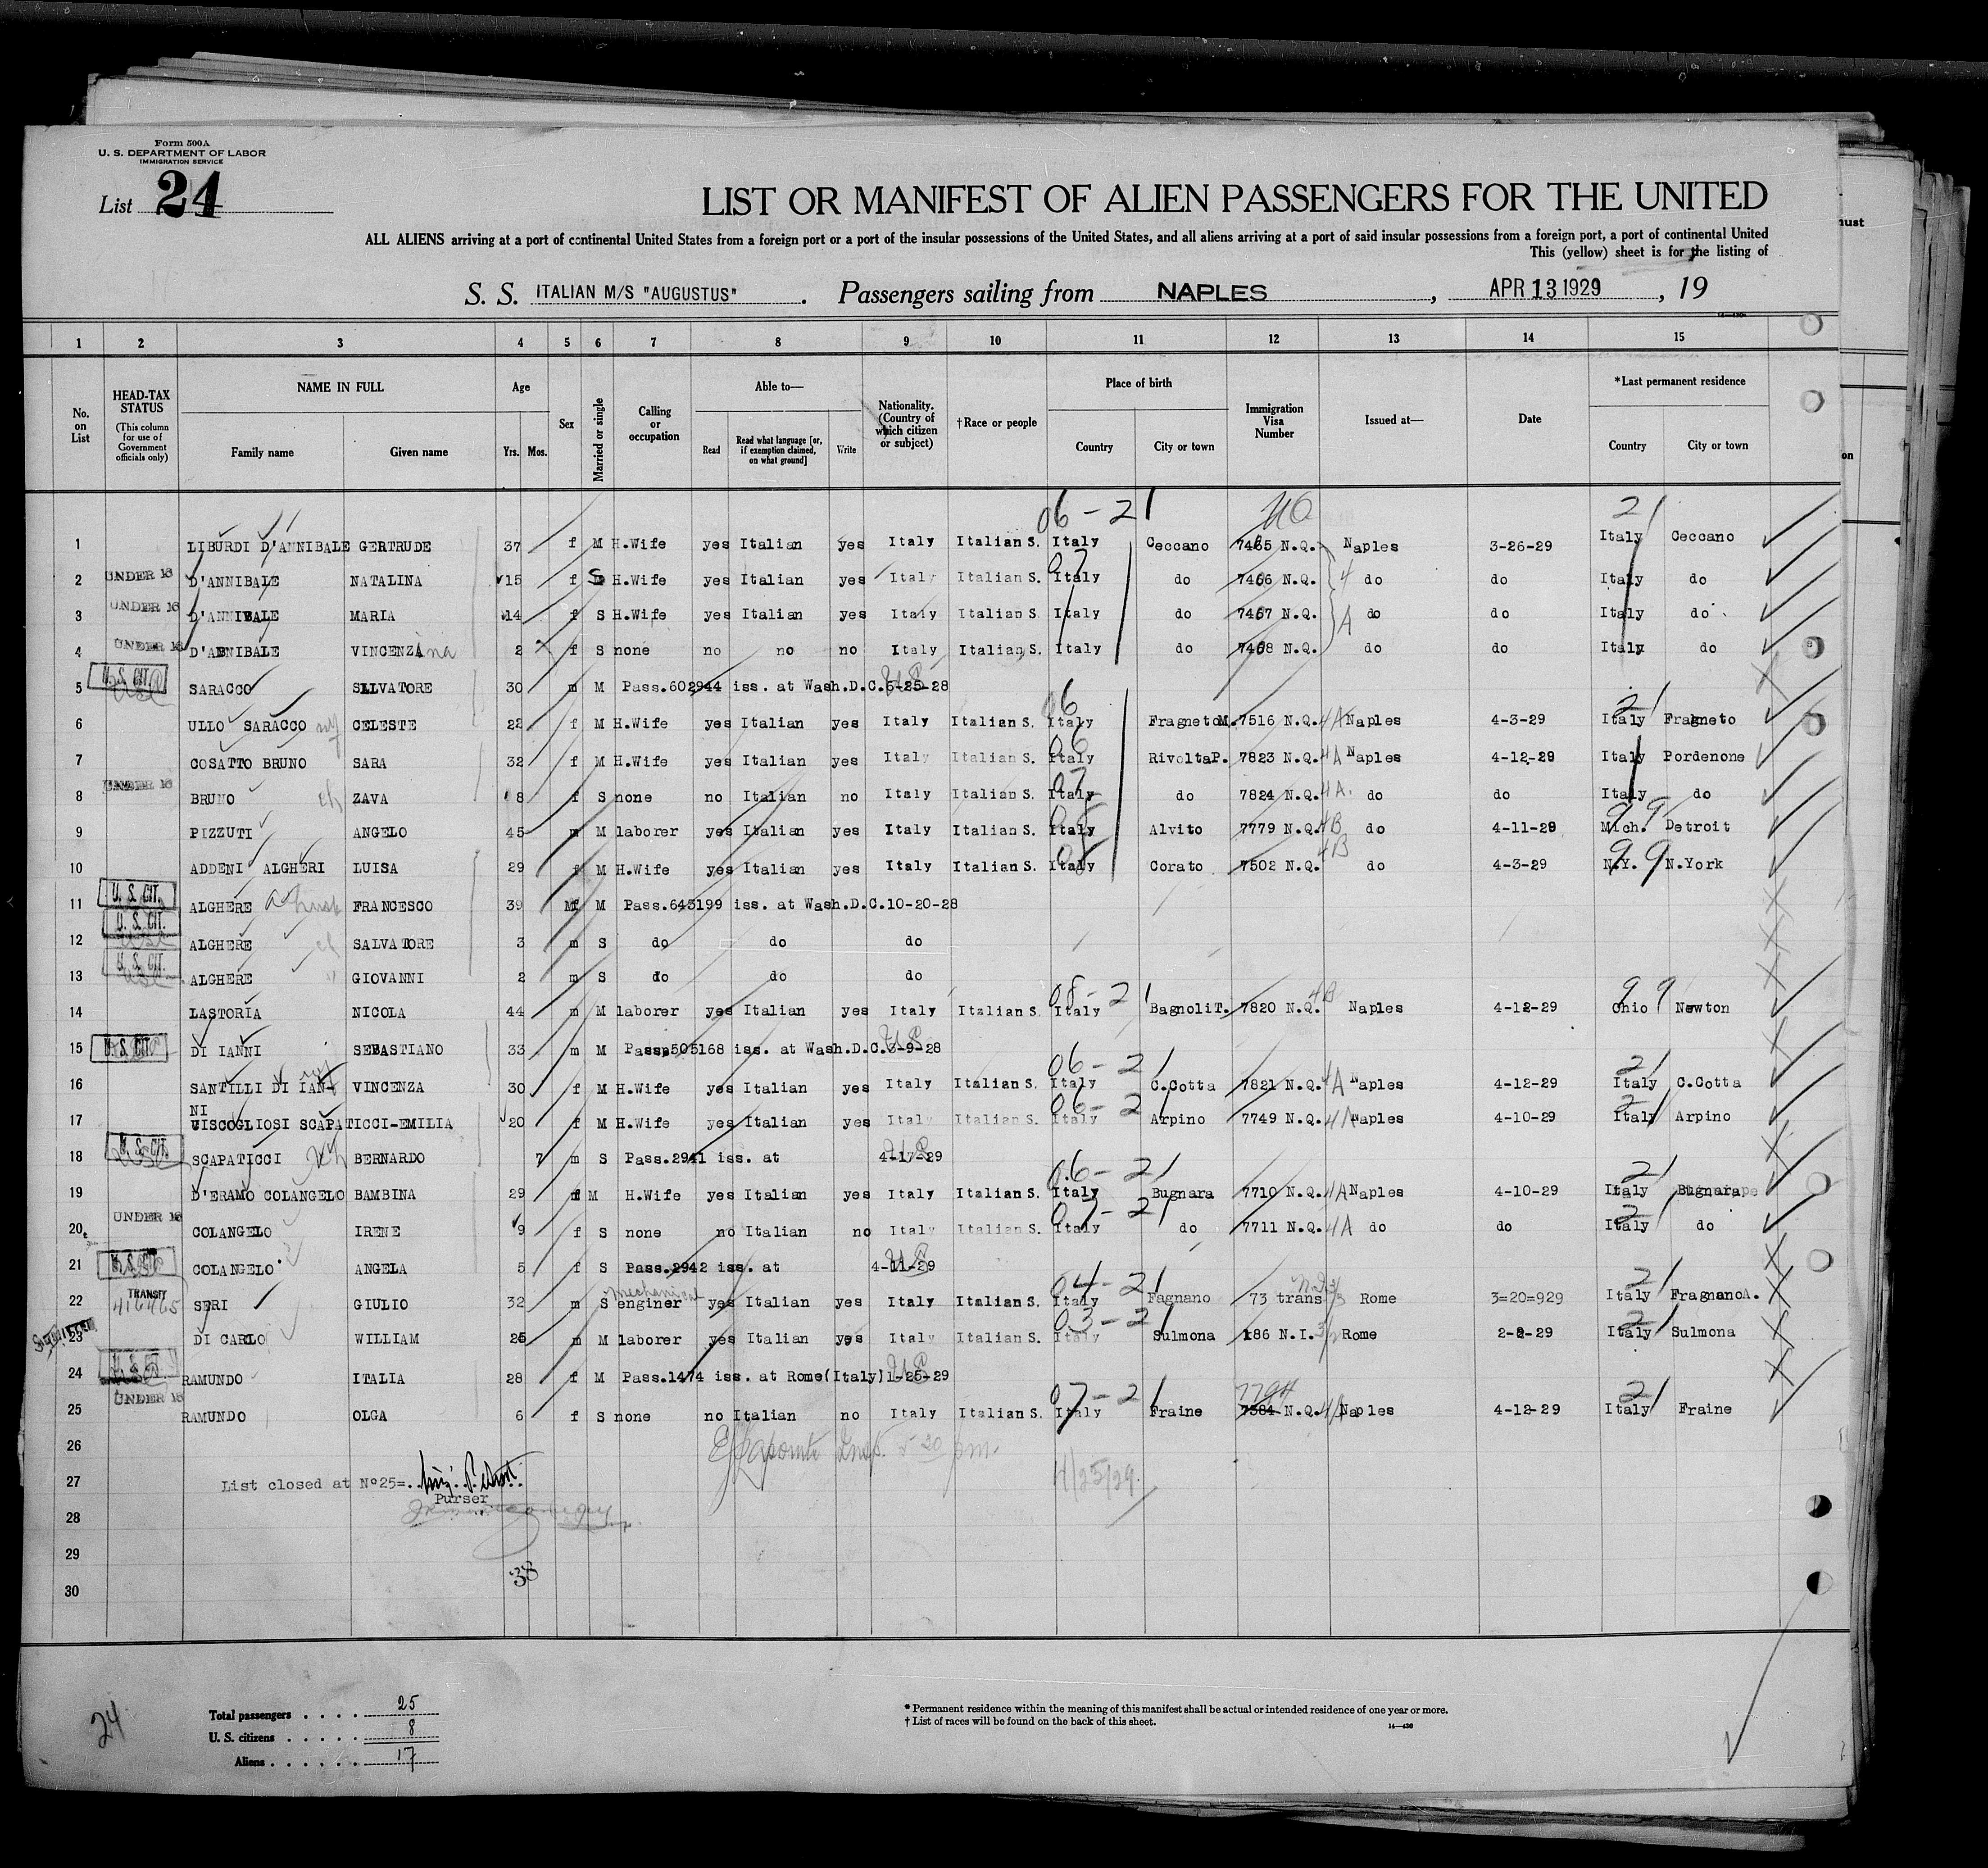 Form 500A
U. S. DEPARTMENT OF LABOR
IMMIGRATION SERVICE
List 24
LIST OR MANIFEST OF ALIEN PASSENGERS FOR THE UNITED
ALL ALIENS arriving at a port of continental United States from a foreign port or a port of the insular possessions of the United States, and all aliens arriving at a port of said insular possessions from a foreign port, a port of continental United
This (yellow) sheet is for the listing of
S. S. ITALIAN M/S "AUGUSTUS" . Passengers sailing from NAPLES , APR 13 1929 , 19
1 2 3 4 5 6 7 8 9 10 11 12 13 14 15
No. on List
HEAD-TAX STATUS
(This column for use of Government officials only)
NAME IN FULL
Family name Given name
Age
Yrs. Mos.
Sex
Married or single
Calling or occupation
Able to—
Read
Read what language [or, if exemption claimed, on what ground]
Write
Nationality. (Country of which citizen or subject)
†Race or people
Place of birth
Country City or town
Immigration Visa Number
Issued at—
Date
*Last permanent residence
Country City or town
06-21 2/
1 LIBURDI D'ANNIBALE GERTRUDE 37 f M H.Wife yes Italian yes Italy Italian S. Italy Ceccano 7465 N.Q. Naples 3-26-29 Italy Ceccano
2 UNDER 16 D'ANNIBALE NATALINA 15 f S H.Wife yes Italian yes Italy Italian S. Italy do 7466 N.Q. 4 do do Italy do
3 UNDER 16 D'ANNIBALE MARIA 14 f S H.Wife yes Italian yes Italy Italian S. Italy do 7467 N.Q. A do do Italy do
4 UNDER 16 D'ANNIBALE VINCENZA na 2 f S none no no no Italy Italian S. Italy do 7468 N.Q. do do Italy do
5 U. S. CIT. SARACCO SALVATORE 30 m M Pass.602944 iss. at Wash.D.C.6-25-28
6 ULLO SARACCO wf CELESTE 22 f M H.Wife yes Italian yes Italy Italian S. Italy FragnetoM. 7516 N.Q. 4A Naples 4-3-29 Italy Fragneto
7 COSATTO BRUNO SARA 32 f M H.Wife yes Italian yes Italy Italian S. Italy RivoltaP. 7823 N.Q. 4A Naples 4-12-29 Italy Pordenone
8 UNDER 16 BRUNO ch ZAVA 8 f S none no Italian no Italy Italian S. Italy do 7824 N.Q. 4A. do do Italy do
9 PIZZUTI ANGELO 45 m M laborer yes Italian yes Italy Italian S. Italy Alvito 7779 N.Q. 4B do 4-11-29 Mich. Detroit
10 ADDENI ALGHERI LUISA 29 f M H.Wife yes Italian yes Italy Italian S. Italy Corato 7502 N.Q. 4B do 4-3-29 N.Y. N.York
11 U. S. CIT. ALGHERE FRANCESCO 39 M Pass.643199 iss. at Wash.D.C.10-20-28
12 U. S. CIT. ALGHERE ch SALVATORE 3 m S do do do
13 U. S. CIT. ALGHERE " GIOVANNI 2 m S do do do
14 LASTORIA NICOLA 44 m M laborer yes Italian yes Italy Italian S. Italy BagnoliT. 7820 N.Q. 4B Naples 4-12-29 Ohio Newton
15 U. S. CIT. DI IANNI SEBASTIANO 33 m M Pass.505168 iss. at Wash.D.C.3-9-28
16 SANTILLI DI IAN- VINCENZA 30 f M H.Wife yes Italian yes Italy Italian S. Italy C.Cotta 7821 N.Q. 4A Naples 4-12-29 Italy C.Cotta
NI
17 VISCOGLIOSI SCAPATICCI-EMILIA 20 f M H.Wife yes Italian yes Italy Italian S. Italy Arpino 7749 N.Q. 4A Naples 4-10-29 Italy Arpino
18 U. S. CIT. SCAPATICCI BERNARDO 7 m S Pass.2941 iss. at 4-17-29
19 D'ERAMO COLANGELO BAMBINA 29 f M H.Wife yes Italian yes Italy Italian S. Italy Bugnara 7710 N.Q. 4A Naples 4-10-29 Italy Bugnara
20 UNDER 16 COLANGELO IRENE 9 f S none no Italian no Italy Italian S. Italy do 7711 N.Q. 4A do do Italy do
21 U. S. CIT. COLANGELO ANGELA 5 f S Pass.2942 iss. at 4-11-29
22 TRANSIT 416465 SERI GIULIO 32 m S mechanical enginer yes Italian yes Italy Italian S. Italy Fagnano 73 trans Rome 3=20=929 Italy FragnanoA.
23 DI CARLO WILLIAM 25 m M laborer yes Italian yes Italy Italian S. Italy Sulmona 186 N.I. Rome 2-8-29 Italy Sulmona
24 U. S. CIT. RAMUNDO ITALIA 28 f M Pass.1474 iss. at Rome(Italy)1-25-29
25 UNDER 16 RAMUNDO OLGA 6 f S none no Italian no Italy Italian S. Italy Fraine 7384 N.Q. Naples 4-12-29 Italy Fraine
26
27 List closed at No25=.
Purser
4/25/29
28
29
30
38
24
Total passengers . . . . 25
U. S. citizens . . . . . 8
Aliens . . . . . . 17
* Permanent residence within the meaning of this manifest shall be actual or intended residence of one year or more.
† List of races will be found on the back of this sheet.
14—430